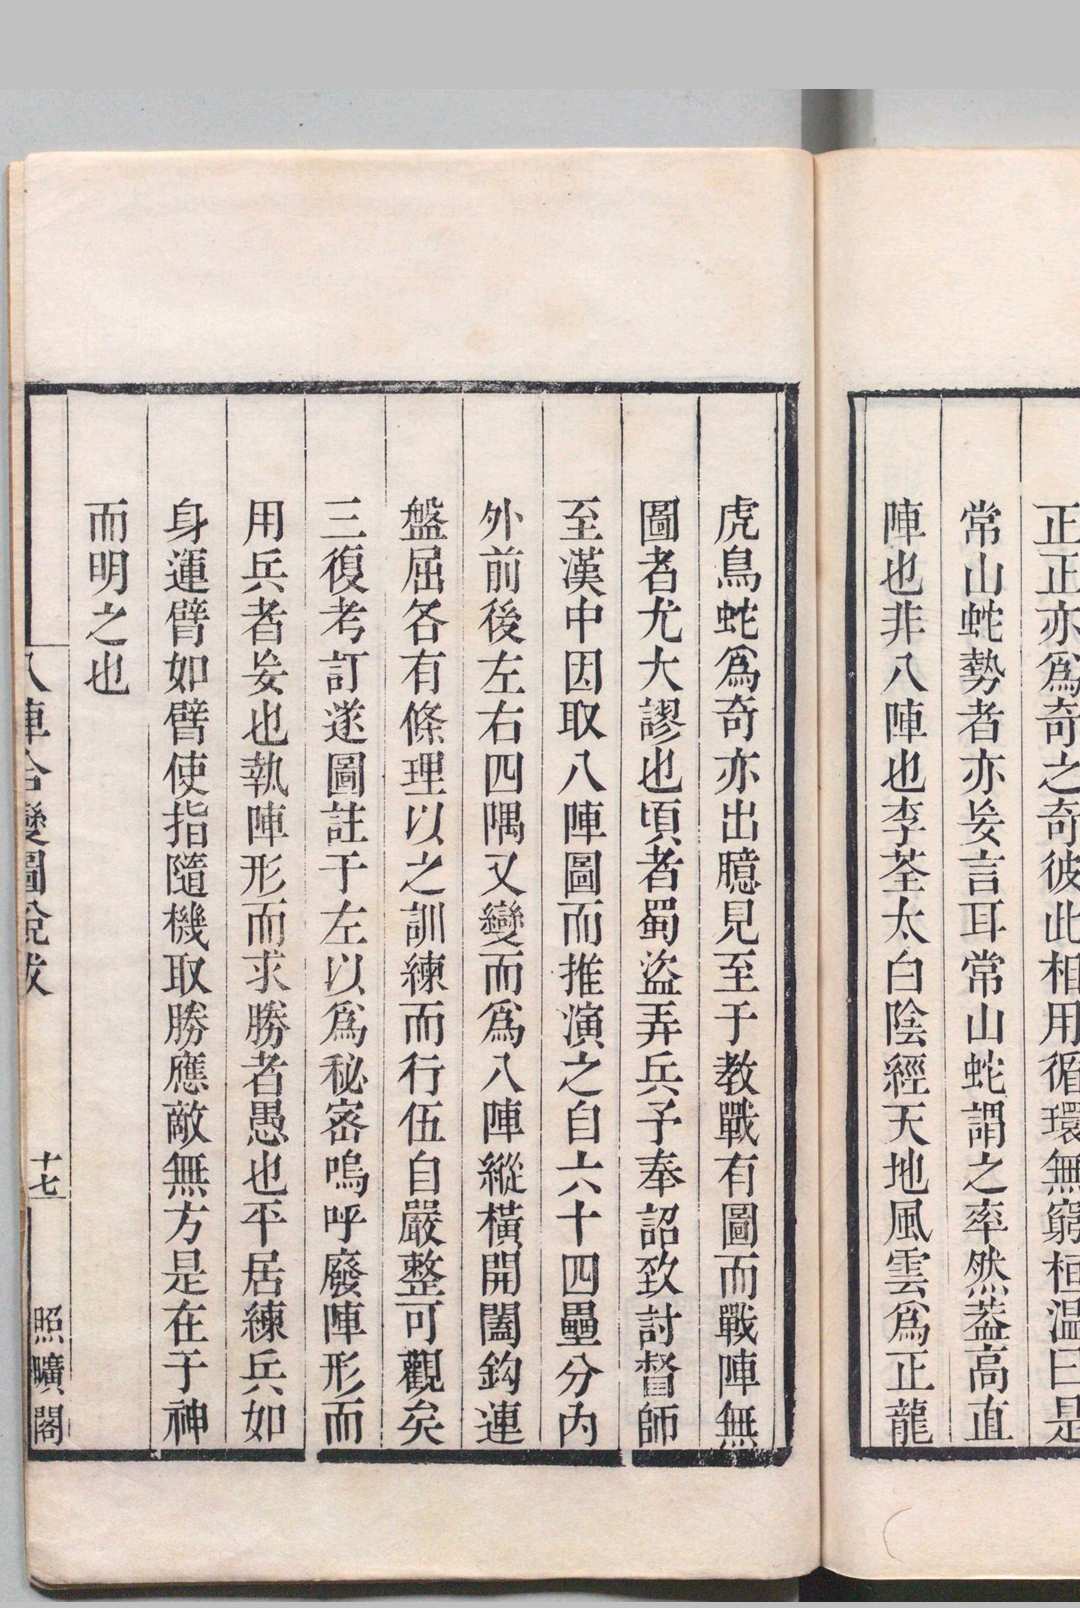 正正亦爲奇之奇彼此相用循環無窮桓温曰是
常山蛇勢者亦妄言耳常山蛇謂之率然葢高直
陣也非八陣也李荃太白陰經天地風雲爲正龍
虎鳥蛇爲奇亦出臆見至于教戰有圖而戰陣無
圖者尤大謬也頃者蜀盜弄兵予奉詔致討督師
至漢中因取八陣圖而推演之自六十四壘分内
外前後左右四隅又變而爲八陣縱横開闔鈎連
盤屈各有條理以之訓練而行伍自嚴整可觀矣
三復考訂遂圖註于左以爲秘宻嗚呼廢陣形而
用兵者妄也執陣形而求勝者愚也平居練兵如
身運臂如臂使指隨機取勝應敵無方是在于神
而明之也
八陣合變圖說跋
十七
照曠閣